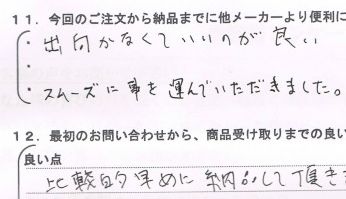 11. 今回のご注文から納品までに他メーカーより便利に
・出向かなくていいのが良い
・
・スムーズに事を運んでいただきました。
12. 最初のお問い合わせから、商品受け取りまでの良い
良い点
比較的早めに納品して頂き